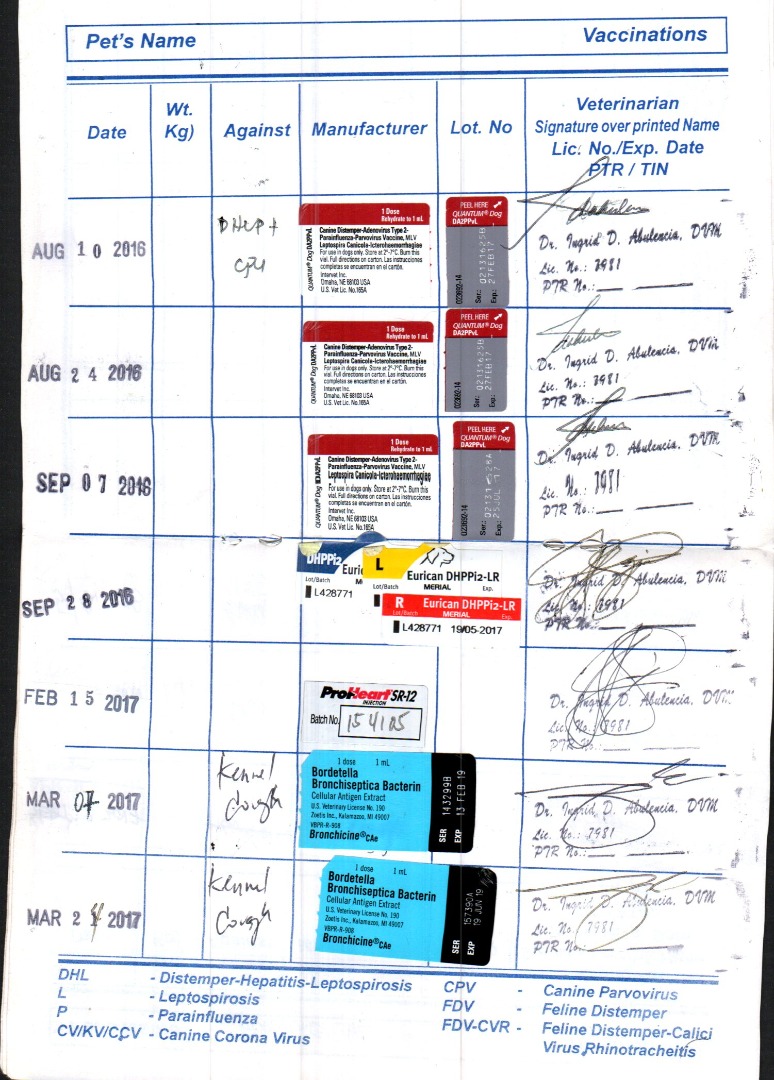 Pet's Name
Vaccinations
Date
Wt.
Kg)
Against
Manufacturer
Lot. No
Veterinarian
Signature over printed Name
Lic. No./Exp. Date
PTR / TIN
AUG 10 2016
DHLP+
CPV
1 Dose
Rehydrate to 1 mL
QUANTUM® Dog DA2PPvL
Canine Distemper-Adenovirus Type 2-
Parainfluenza-Parvovirus Vaccine, MLV
Leptospira Canicola-Icterohaemorrhagiae
For use in dogs only. Store at 2°-7°C. Burn this
vial. Full directions on carton. Las instrucciones
completas se encuentran en el cartón.
Intervet Inc.
Omaha, NE 68103 USA
U.S. Vet Lic. No.165A
PEEL HERE
QUANTUM® Dog
DA2PPvL
022692-14
Ser.: 02131625B
Exp.: 27FEB17
Dr. Ingrid D. Abulencia, DVM
Lic. No.: 3981
PTR No.:
AUG 24 2016
1 Dose
Rehydrate to 1 mL
QUANTUM® Dog DA2PPvL
Canine Distemper-Adenovirus Type 2-
Parainfluenza-Parvovirus Vaccine, MLV
Leptospira Canicola-Icterohaemorrhagiae
For use in dogs only. Store at 2°-7°C. Burn this
vial. Full directions on carton. Las instrucciones
completas se encuentran en el cartón.
Intervet Inc.
Omaha, NE 68103 USA
U.S. Vet Lic. No.165A
PEEL HERE
QUANTUM® Dog
DA2PPvL
022692-14
Ser.: 02131625B
Exp.: 27FEB17
Dr. Ingrid D. Abulencia, DVM
Lic. No.: 3981
PTR No.:
SEP 07 2016
1 Dose
Rehydrate to 1 mL
QUANTUM® Dog DA2PPvL
Canine Distemper-Adenovirus Type 2-
Parainfluenza-Parvovirus Vaccine, MLV
Leptospira Canicola-Icterohaemorrhagiae
For use in dogs only. Store at 2°-7°C. Burn this
vial. Full directions on carton. Las instrucciones
completas se encuentran en el cartón.
Intervet Inc.
Omaha, NE 68103 USA
U.S. Vet Lic. No.165A
PEEL HERE
QUANTUM® Dog
DA2PPvL
022692-14
Ser.:
Exp.:
Dr. Ingrid D. Abulencia, DVM
Lic. No.: 3981
PTR No.:
SEP 28 2016
DHPPi2
Euric
Lot/Batch
L428771
L
Eurican DHPPi2-LR
Lot/Batch MERIAL Exp.
R Eurican DHPPi2-LR
Lot/Batch MERIAL Exp.
L428771 19/05-2017
Dr. Ingrid D. Abulencia, DVM
Lic. No.: 3981
PTR No.:
FEB 15 2017
ProHeart SR-12
INJECTION
Batch No. 154105
Dr. Ingrid D. Abulencia, DVM
Lic. No.: 3981
PTR No.:
MAR 07 2017
Kennel
Cough
1 dose 1 mL
Bordetella
Bronchiseptica Bacterin
Cellular Antigen Extract
U.S. Veterinary License No. 190
Zoetis Inc., Kalamazoo, MI 49007
VBPR-R-908
Bronchicine®CAe
SER 143299B
EXP 13 FEB 19
Dr. Ingrid D. Abulencia, DVM
Lic. No.: 3981
PTR No.:
MAR 21 2017
Kennel
Cough
1 dose 1 mL
Bordetella
Bronchiseptica Bacterin
Cellular Antigen Extract
U.S. Veterinary License No. 190
Zoetis Inc., Kalamazoo, MI 49007
VBPR-R-908
Bronchicine®CAe
SER 157390A
EXP 19 JUN 19
Dr. Ingrid D. Abulencia, DVM
Lic. No.: 3981
PTR No.:
DHL - Distemper-Hepatitis-Leptospirosis
L - Leptospirosis
P - Parainfluenza
CV/KV/CCV - Canine Corona Virus
CPV - Canine Parvovirus
FDV - Feline Distemper
FDV-CVR - Feline Distemper-Calici
Virus,Rhinotracheitis